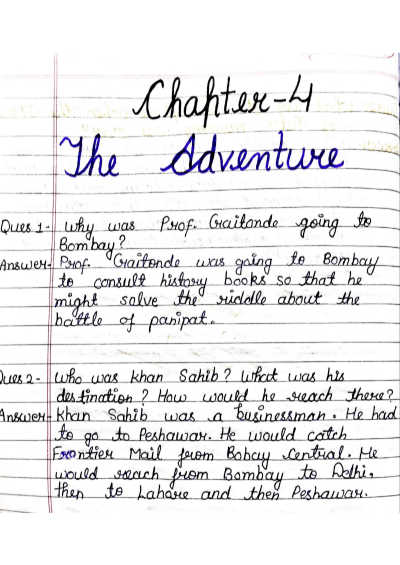 Chapter-4
The Adventure
Ques 1- Why was Prof. Gaitonde going to
Bombay?
Answer- Prof. Gaitonde was going to Bombay
to consult history books so that he
might solve the riddle about the
battle of panipat.
Ques 2- Who was Khan Sahib? What was his
destination? How would he reach there?
Answer- Khan Sahib was a businessman. He had
to go to Peshawar. He would catch
Frontier Mail from Bobay Central. He
would reach from Bombay to Delhi,
then to Lahore and then Peshawar.